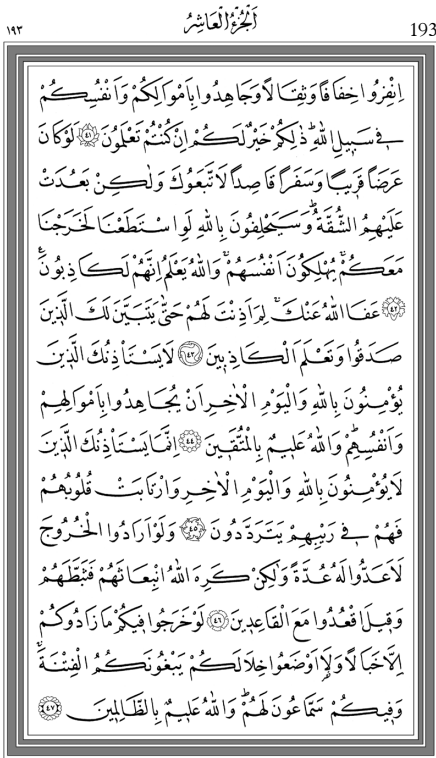 ١٩٣ اَلْجُزْءُ الْعَاشِرُ 193
اِنْفِرُوا خِفَافًا وَثِقَالًا وَجَاهِدُوا بِاَمْوَالِكُمْ وَاَنْفُسِكُمْ
فٖي سَبٖيلِ اللّٰهِ ذٰلِكُمْ خَيْرٌ لَكُمْ اِنْ كُنْتُمْ تَعْلَمُونَ ﴿٤١﴾ لَوْ كَانَ
عَرَضًا قَرٖيبًا وَسَفَرًا قَاصِدًا لَاتَّبَعُوكَ وَلٰكِنْ بَعُدَتْ
عَلَيْهِمُ الشُّقَّةُ وَسَيَحْلِفُونَ بِاللّٰهِ لَوِ اسْتَطَعْنَا لَخَرَجْنَا
مَعَكُمْ يُهْلِكُونَ اَنْفُسَهُمْ وَاللّٰهُ يَعْلَمُ اِنَّهُمْ لَكَاذِبُونَ
﴿٤٢﴾ عَفَا اللّٰهُ عَنْكَ لِمَ اَذِنْتَ لَهُمْ حَتّٰى يَتَبَيَّنَ لَكَ الَّذٖينَ
صَدَقُوا وَتَعْلَمَ الْكَاذِبٖينَ ﴿٤٣﴾ لَا يَسْتَأْذِنُكَ الَّذٖينَ
يُؤْمِنُونَ بِاللّٰهِ وَالْيَوْمِ الْاٰخِرِ اَنْ يُجَاهِدُوا بِاَمْوَالِهِمْ
وَاَنْفُسِهِمْ وَاللّٰهُ عَلٖيمٌ بِالْمُتَّقٖينَ ﴿٤٤﴾ اِنَّمَا يَسْتَأْذِنُكَ الَّذٖينَ
لَا يُؤْمِنُونَ بِاللّٰهِ وَالْيَوْمِ الْاٰخِرِ وَارْتَابَتْ قُلُوبُهُمْ
فَهُمْ فٖي رَيْبِهِمْ يَتَرَدَّدُونَ ﴿٤٥﴾ وَلَوْ اَرَادُوا الْخُرُوجَ
لَاَعَدُّوا لَهُ عُدَّةً وَلٰكِنْ كَرِهَ اللّٰهُ انْبِعَاثَهُمْ فَثَبَّطَهُمْ
وَقٖيلَ اقْعُدُوا مَعَ الْقَاعِدٖينَ ﴿٤٦﴾ لَوْ خَرَجُوا فٖيكُمْ مَا زَادُوكُمْ
اِلَّا خَبَالًا وَلَا۬اَوْضَعُوا خِلَالَكُمْ يَبْغُونَكُمُ الْفِتْنَةَ
وَفٖيكُمْ سَمَّاعُونَ لَهُمْ وَاللّٰهُ عَلٖيمٌ بِالظَّالِمٖينَ ﴿٤٧﴾